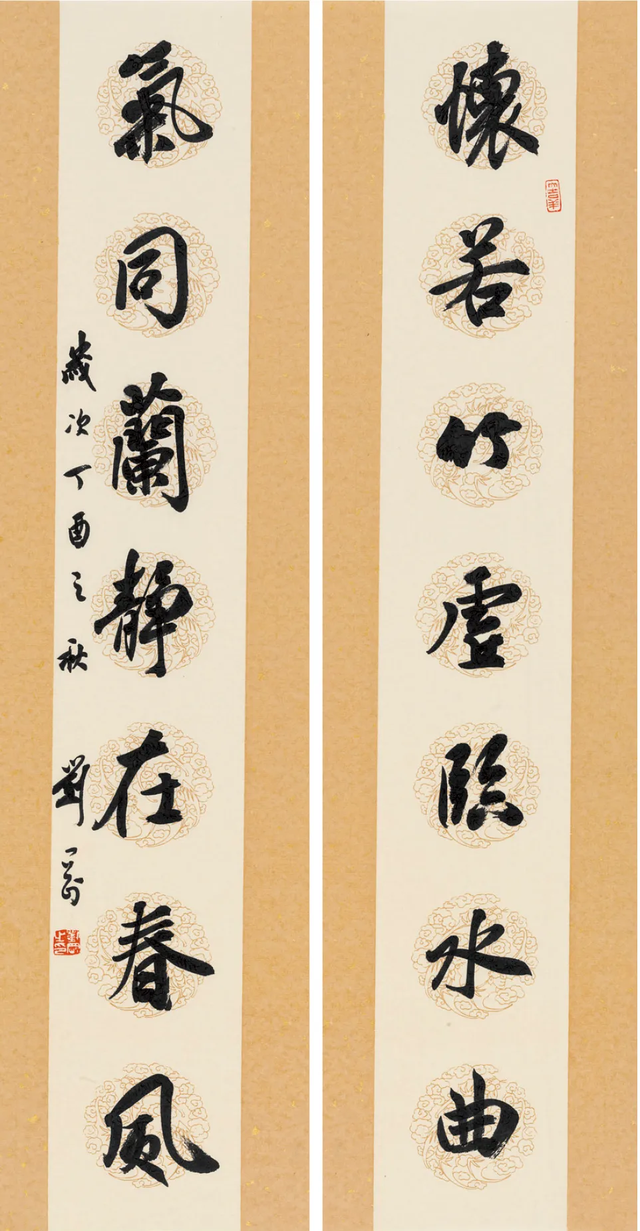 懷若竹虛臨水曲
氣同蘭靜在春風
歲次丁酉之秋 劉